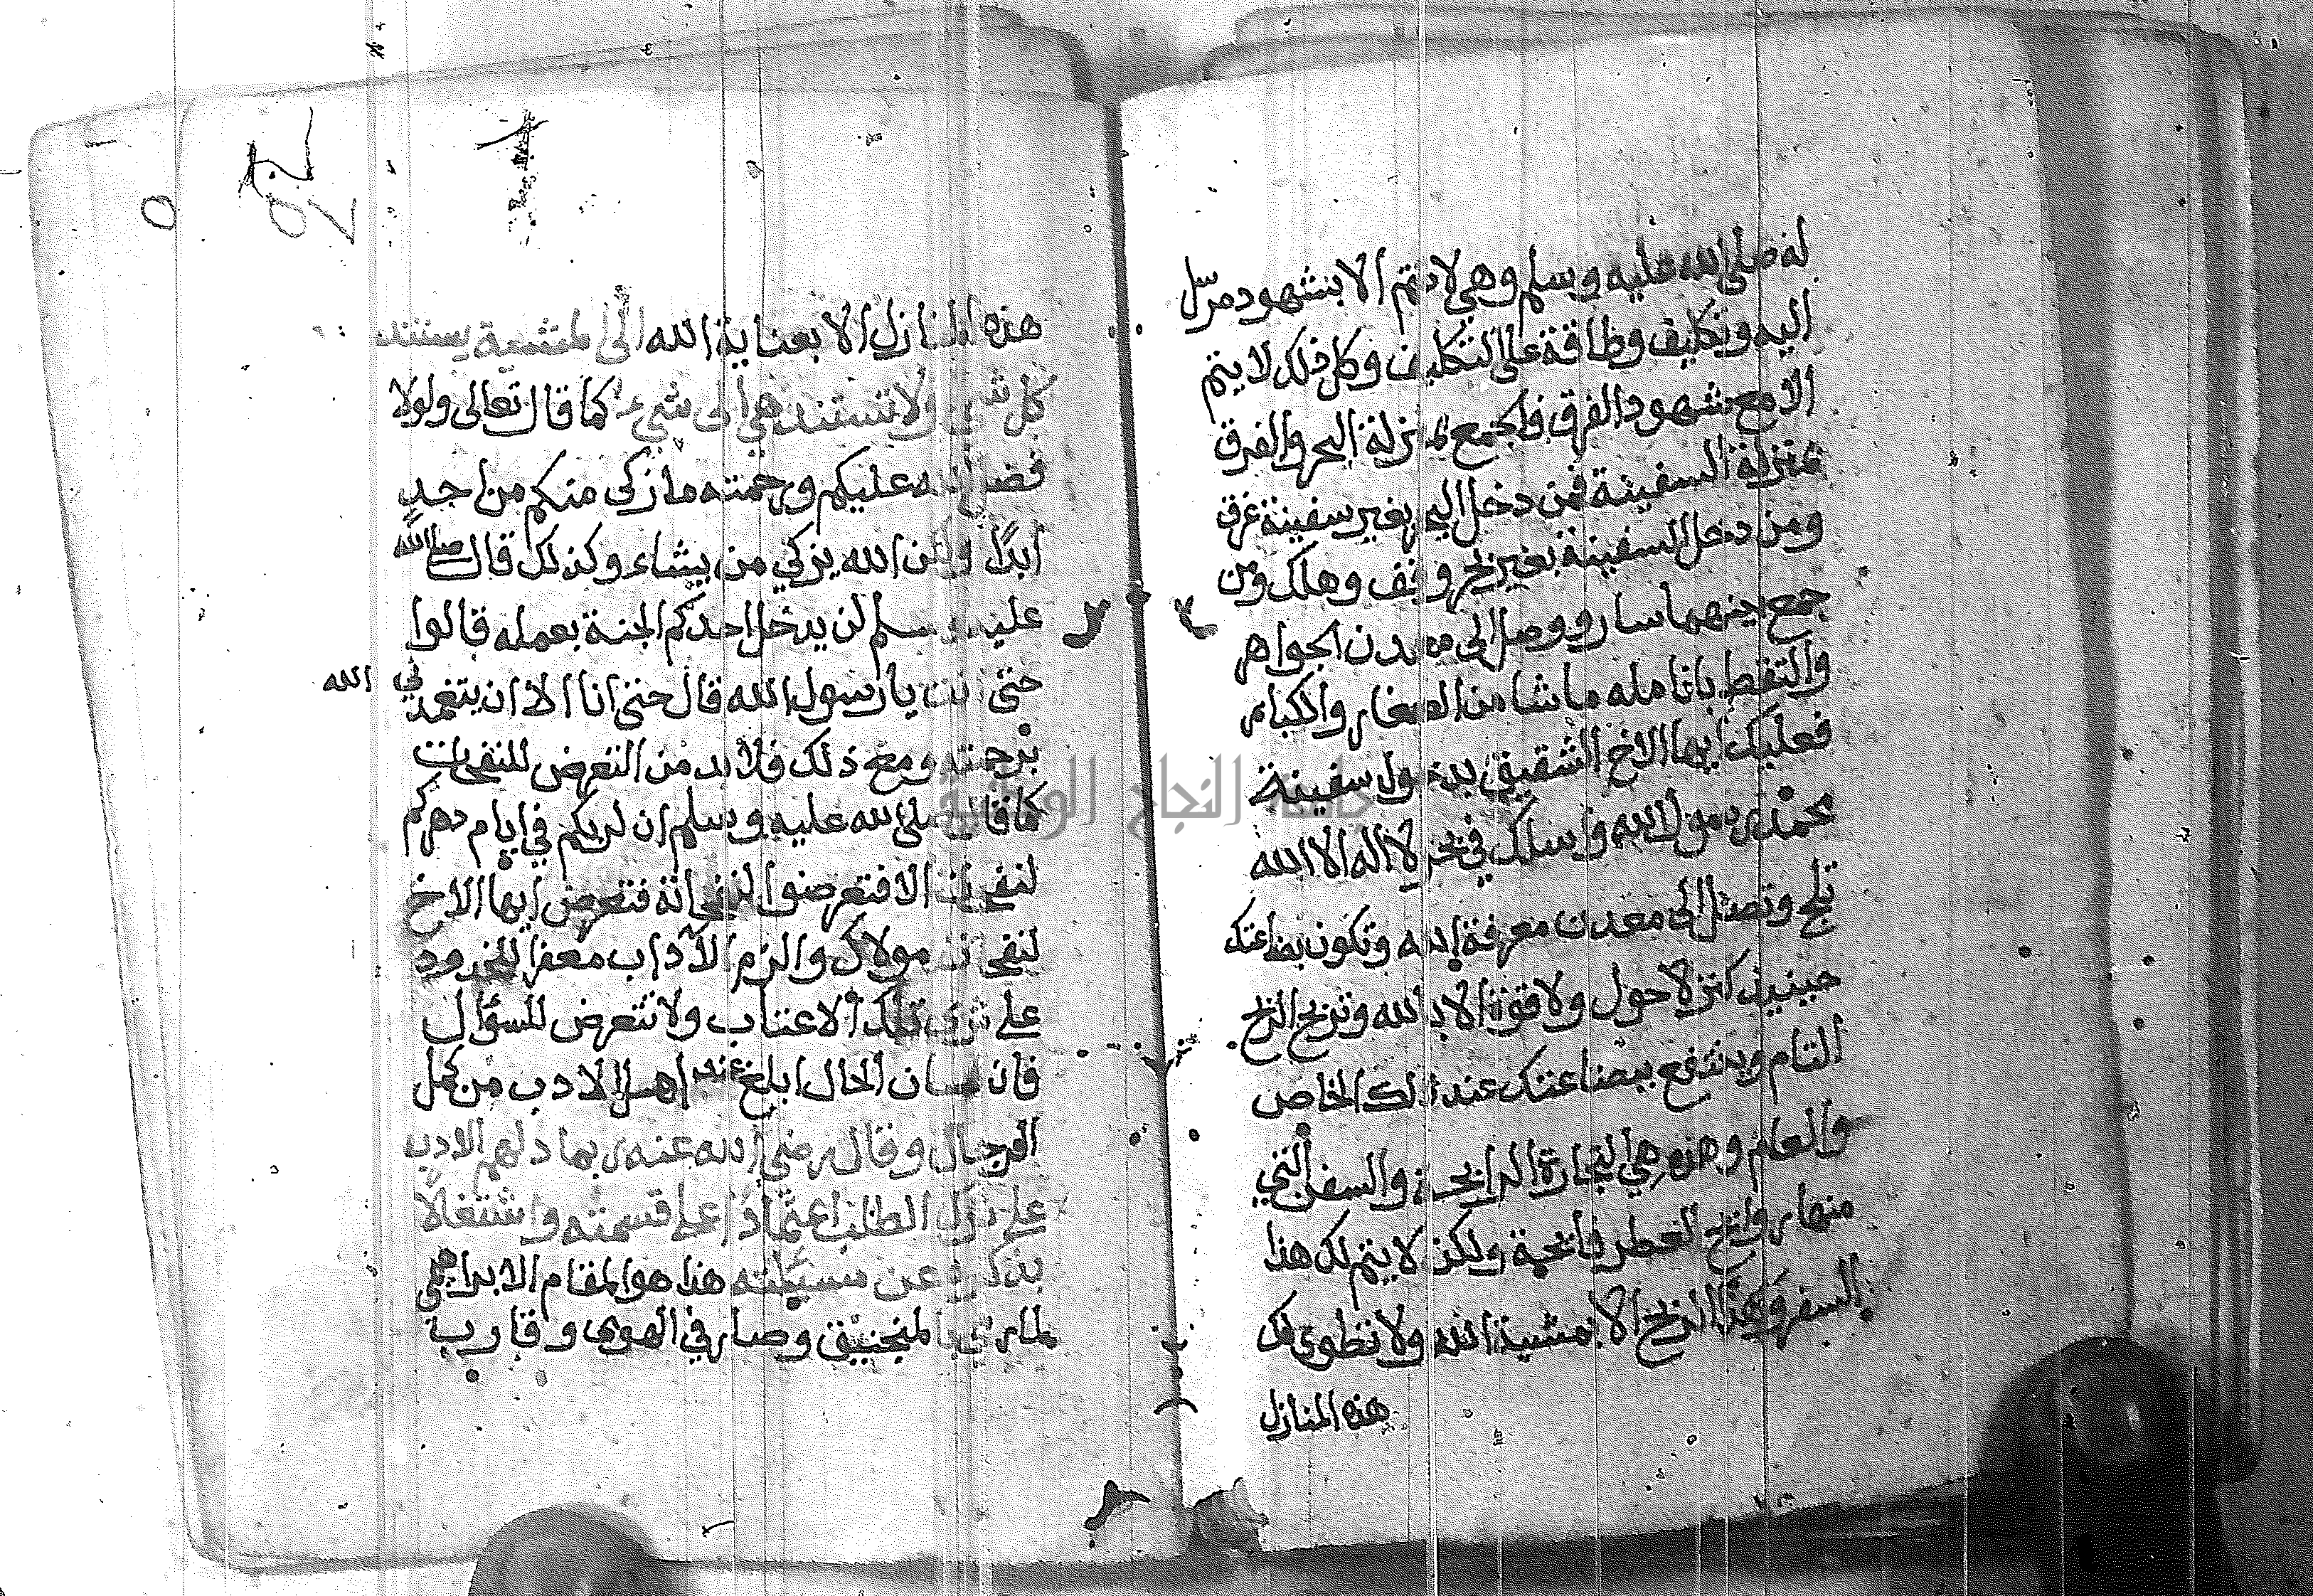 له صلى الله عليه وسلم وهي لا تتم الا بشهود مرسل
اليه وتكليف وطاقة على التكليف وكل ذلك لا يتم
الا مع شهود الفرق فالجمع بمنزلة البحر والفرق
بمنزلة السفينة فمن دخل البحر بغير سفينة غرق
ومن دخل السفينة بغير بحر وقف وهلك ومن
جمع بينهما سار ووصل الى معدن الجواهر
والتقط بانامله ما شا من الصغار والكبار
فعليك ايها الاخ الشقيق بدخول سفينة
محمد رسول الله واسلك في بحر لا اله الا الله
تلج وتصل الى معدن معرفة الله وتكون بضاعتك
حينيذ كنز لا حول ولا قوة الا بالله وتربح الربح
التام وينتفع ببضاعتك عند ذلك الخاص
والعام وهذه هي التجارة الرابحة والسفن التي
منها روايح العطر فايحة ولكن لا يتم لك هذا
السفر وهذا الربح الا بمشية الله ولا تطوى لك
هذه المنازل
هذه المنازل الا بعناية الله الى المشية يستند
كل شي ولا تستند هي الى شيء كما قال تعالى ولولا
فضل الله عليكم ورحمته ما زكى منكم من احد
ابدًا ولكن الله يزكي من يشاء وكذلك قال صلى الله
عليه وسلم لن يدخل احدكم الجنة بعمله قالوا
حتى انت يا رسول الله قال حتى انا الا ان يتغمدني الله
برحمته ومع ذلك فلا بد من التعرض للنفحات
كما قال صلى الله عليه وسلم ان لربكم في ايام دهركم
لنفحات الا فتعرضوا لنفحاته فتعرض ايها الاخ
لنفحات مولاك والزم الآداب معفرا للخدود
على ثرى تلك الاعتاب ولا تتعرض للسؤال
فان لسان الحال ابلغ عند اهل الادب من كمل
الرجال وقال رضي الله عنه ربما دلهم الادب
على ترك الطلب اعتمادًا على قسمته واشتغالًا
بذكره عن مسئلته هذا هو المقام الابراهيمي
لما رمي بالمنجنيق وصار في الهوى وقارب
جامعة النجاح الوطنية